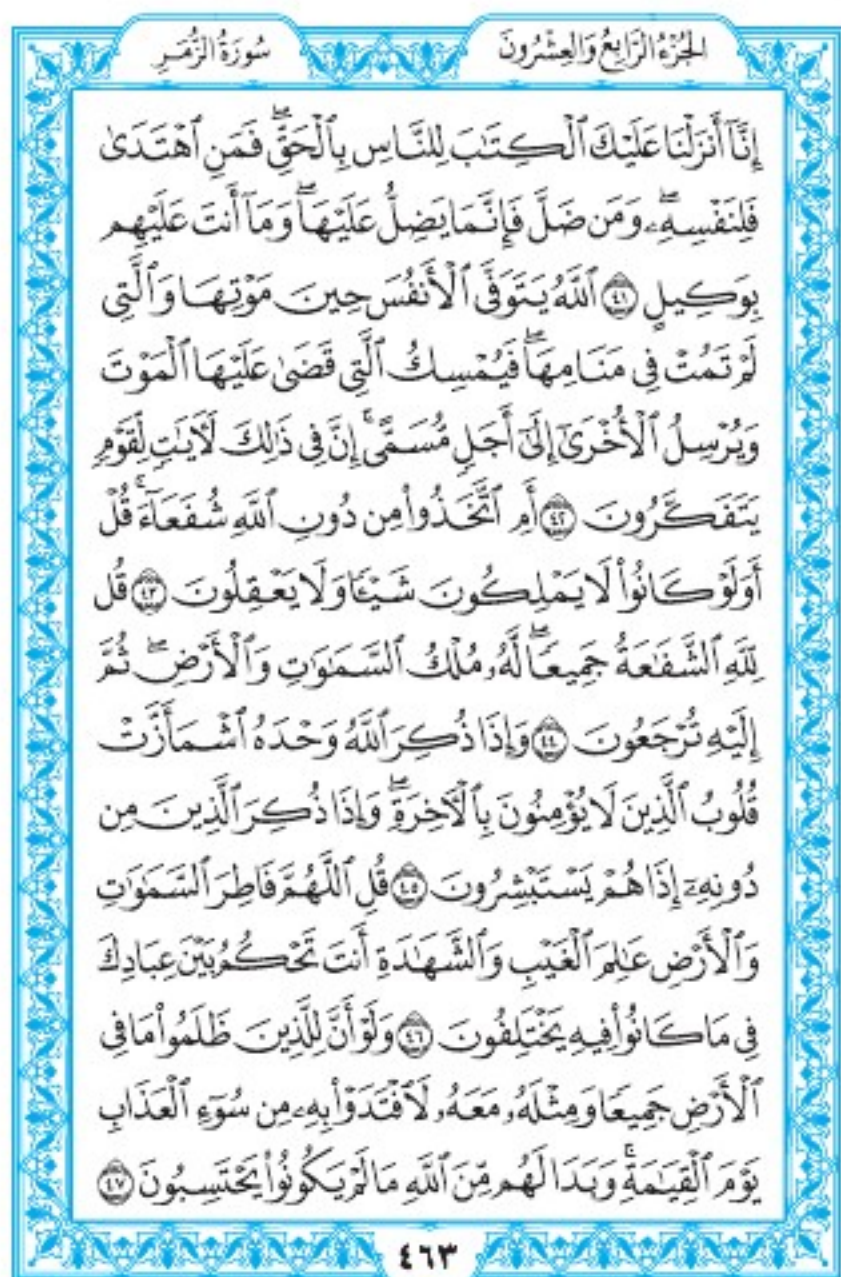 الجُزْءُ الرَّابِعُ وَالعِشْرُونَ
سُورَةُ الزُّمَرِ
إِنَّآ أَنزَلْنَا عَلَيْكَ ٱلْكِتَٰبَ لِلنَّاسِ بِٱلْحَقِّۖ فَمَنِ ٱهْتَدَىٰ
فَلِنَفْسِهِۦۖ وَمَن ضَلَّ فَإِنَّمَا يَضِلُّ عَلَيْهَاۖ وَمَآ أَنتَ عَلَيْهِم
بِوَكِيلٍ ٤١ ٱللَّهُ يَتَوَفَّى ٱلْأَنفُسَ حِينَ مَوْتِهَا وَٱلَّتِى
لَمْ تَمُتْ فِى مَنَامِهَاۖ فَيُمْسِكُ ٱلَّتِى قَضَىٰ عَلَيْهَا ٱلْمَوْتَ
وَيُرْسِلُ ٱلْأُخْرَىٰٓ إِلَىٰٓ أَجَلٍ مُّسَمًّىۚ إِنَّ فِى ذَٰلِكَ لَأَيَٰتٍ لِّقَوْمٍ
يَتَفَكَّرُونَ ٤٢ أَمِ ٱتَّخَذُوا۟ مِن دُونِ ٱللَّهِ شُفَعَآءَۚ قُلْ
أَوَلَوْ كَانُوا۟ لَا يَمْلِكُونَ شَيْـًٔا وَلَا يَعْقِلُونَ ٤٣ قُل
لِّلَّهِ ٱلشَّفَٰعَةُ جَمِيعًاۖ لَّهُۥ مُلْكُ ٱلسَّمَٰوَٰتِ وَٱلْأَرْضِۖ ثُمَّ
إِلَيْهِ تُرْجَعُونَ ٤٤ وَإِذَا ذُكِرَ ٱللَّهُ وَحْدَهُ ٱشْمَأَزَّتْ
قُلُوبُ ٱلَّذِينَ لَا يُؤْمِنُونَ بِٱلْأَخِرَةِۖ وَإِذَا ذُكِرَ ٱلَّذِينَ مِن
دُونِهِۦٓ إِذَا هُمْ يَسْتَبْشِرُونَ ٤٥ قُلِ ٱللَّهُمَّ فَاطِرَ ٱلسَّمَٰوَٰتِ
وَٱلْأَرْضِ عَٰلِمَ ٱلْغَيْبِ وَٱلشَّهَٰدَةِ أَنتَ تَحْكُمُ بَيْنَ عِبَادِكَ
فِى مَا كَانُوا۟ فِيهِ يَخْتَلِفُونَ ٤٦ وَلَوْ أَنَّ لِلَّذِينَ ظَلَمُوا۟ مَا فِى
ٱلْأَرْضِ جَمِيعًا وَمِثْلَهُۥ مَعَهُۥ لَٱفْتَدَوْا۟ بِهِۦ مِن سُوٓءِ ٱلْعَذَابِ
يَوْمَ ٱلْقِيَٰمَةِۚ وَبَدَا لَهُم مِّنَ ٱللَّهِ مَا لَمْ يَكُونُوا۟ يَحْتَسِبُونَ ٤٧
٤٦٣